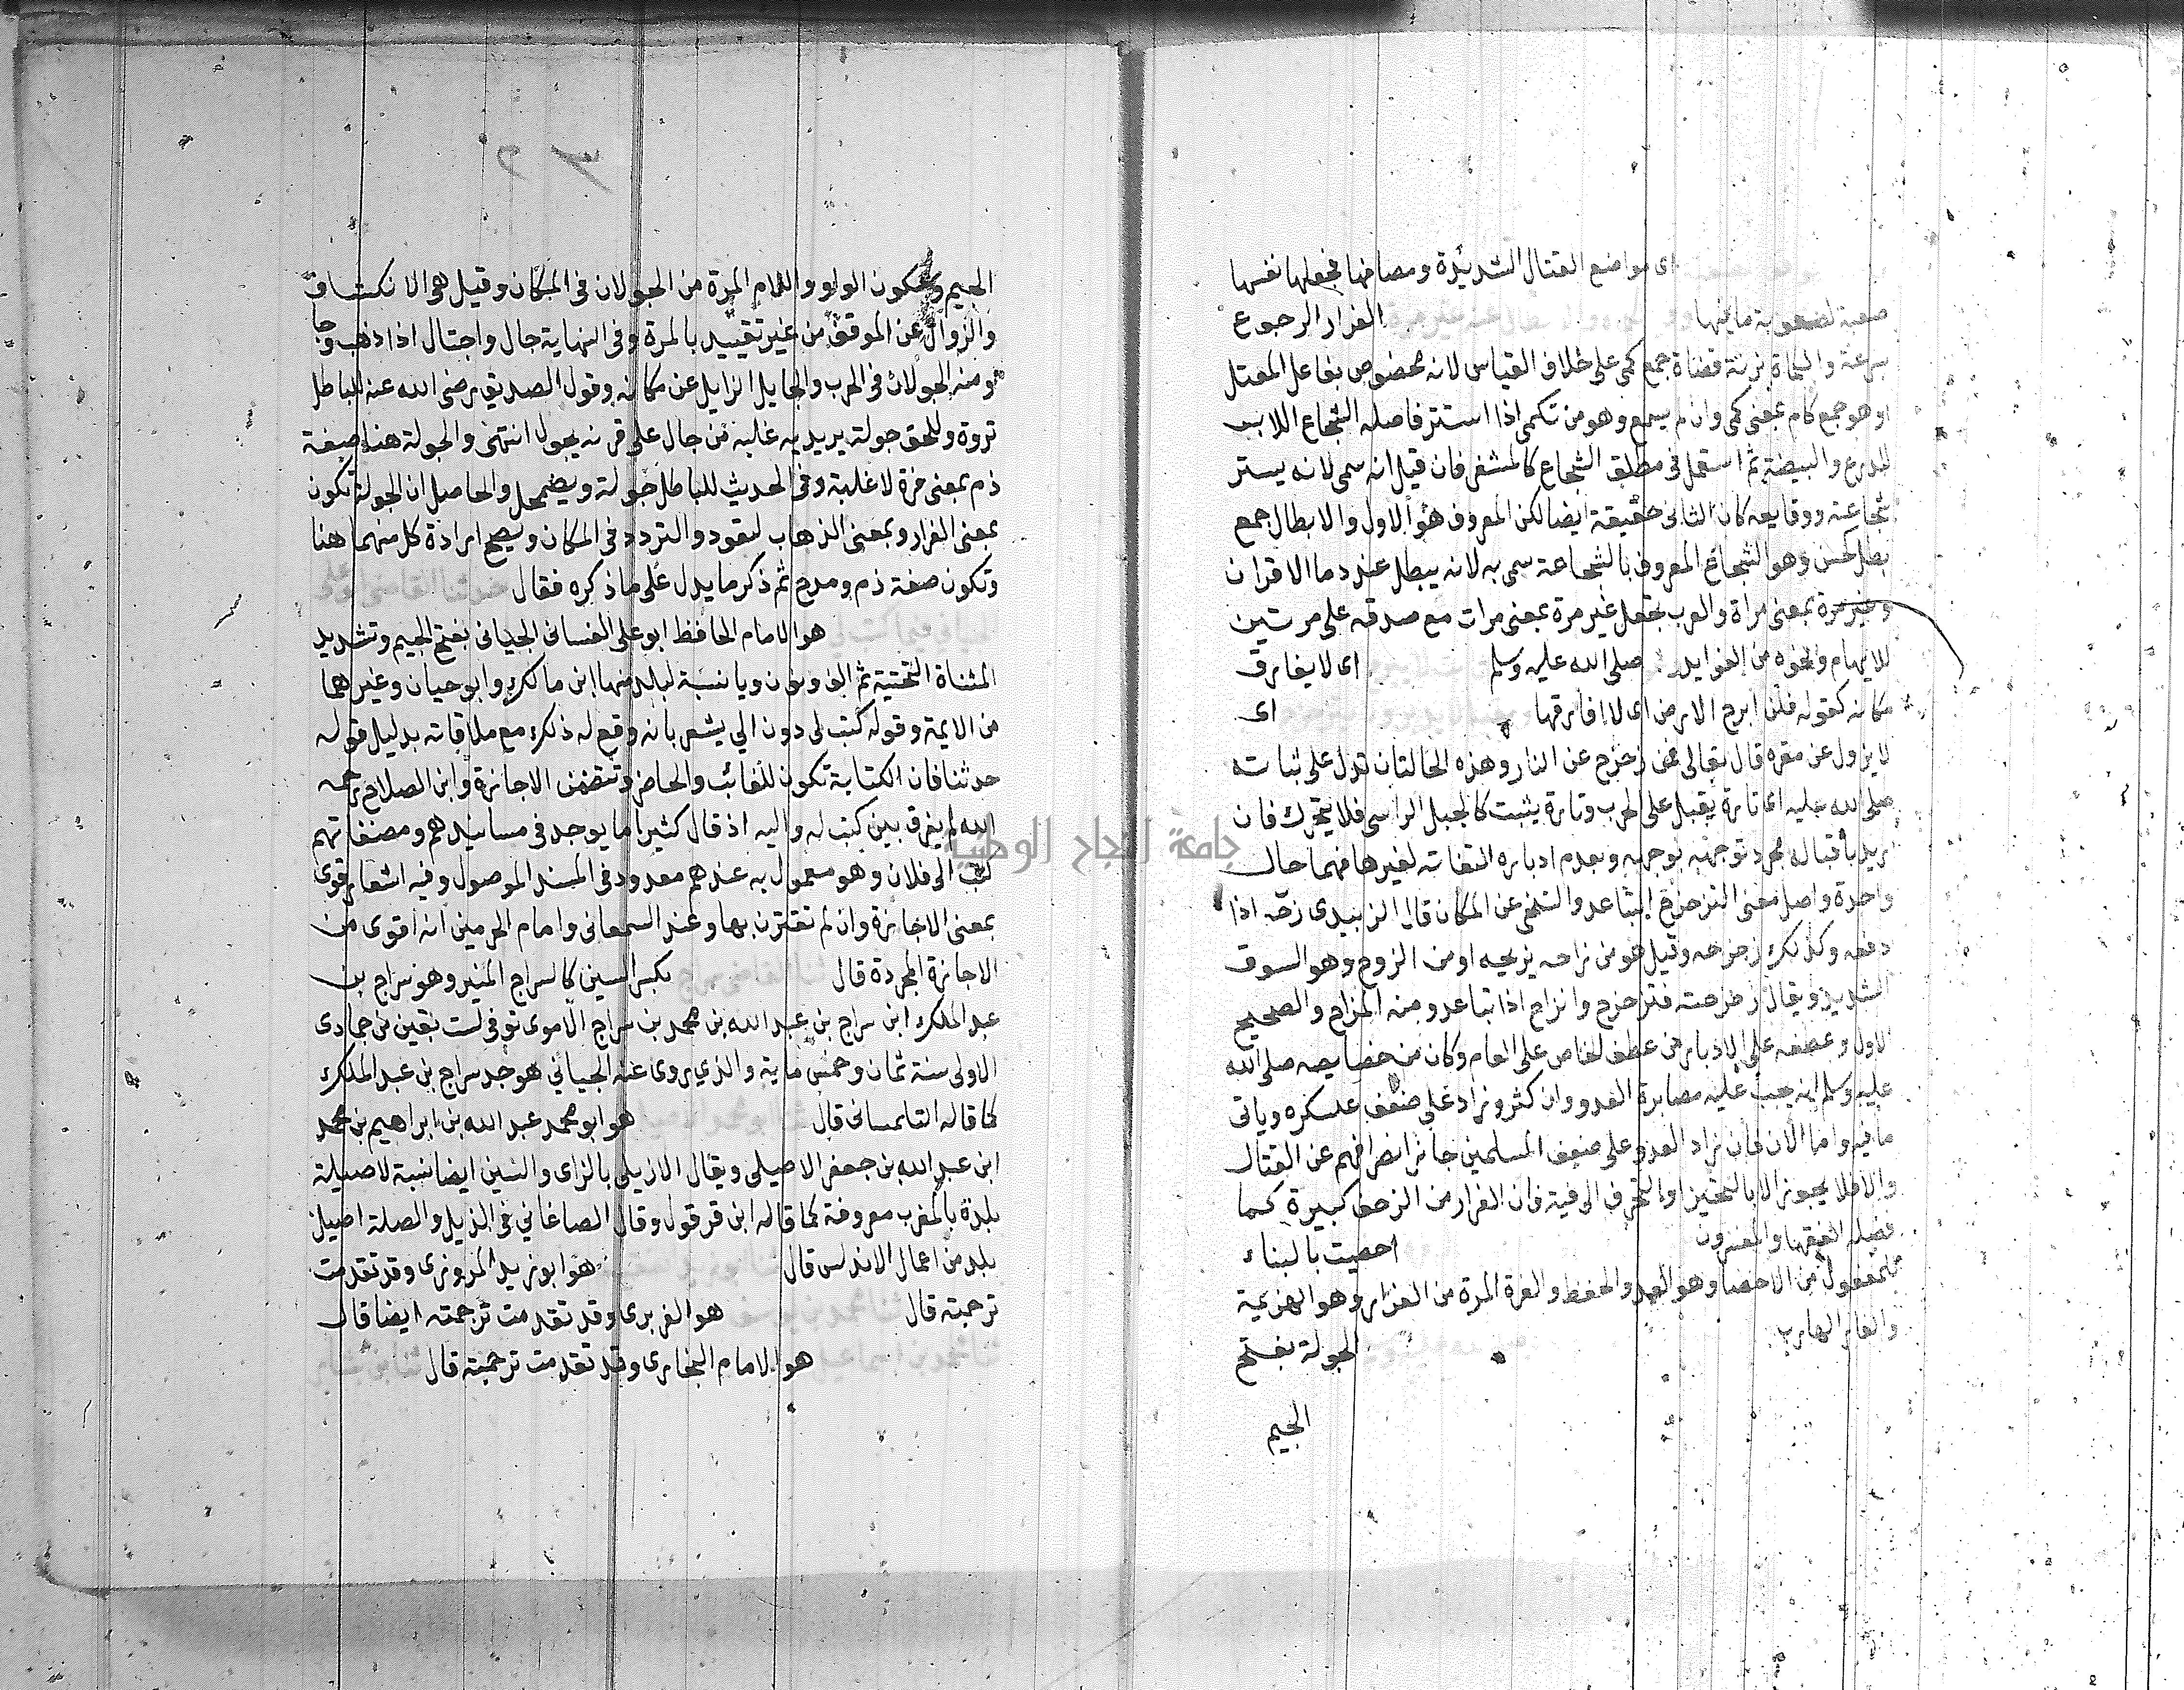 اى مواضع القتال الشديدة ومصافها فجعلها نفسها
صعبة لصعوبة ما فيها الفرار الرجوع
بسرعة والكماة بزنة قضاة جمع كمى على خلاف القياس لانه مخصوص بفاعل المعتل
او هو جمع كام بمعنى كمى وان لم يسمع وهو من تكمى اذا استتر فاصله الشجاع اللابس
للدرع والبيضة ثم استعمل فى مطلق الشجاع كالمشفر فان قيل انه سمى لانه يستر
شجاعته ووقايعه كان الثانى حقيقة ايضا لكن المعروف هو الاول والابطال جمع
بطل كحسن وهو الشجاع المعروف بالشجاعة سمى به لانه يبطل عنده دما الاقران
وغير مرة بمعنى مراة والعرب تجعل غير مرة بمعنى مرات مع صدقه على مرتين
للايهام ونحوه من الفوايد صلى الله عليه وسلم اى لا يفارق
مكانه كقوله فلن ابرح الارض اى لا افارقها اى
لا يزول عن مقره قال تعالى فمن زحزح عن النار وهذه الحالتان تدل على ثباته
صلى الله عليه اى تارة يقبل على الحرب وتارة يثبت كالجبل الراسى فلا يتحرك فان
اريد باقباله مجرد توجهه بوجهه وبعدم ادباره التفاته لغيرها فهما حال
واحدة واصل معنى التزحزح التباعد والتنحى عن المكان قال الزبيدى زحه اذا
دفعه وكذلك زحزحه وقيل هو من زاحه يزيحه او من الزوح وهو السوق
الشديد ويقال زحزحته فتزحزح وانزاح اذا تباعد ومنه المزاح والصحيح
الاول وعطفه على الادبار من عطف الخاص على العام وكان من خصايصه صلى الله
عليه وسلم انه يجب عليه مصابرة العدو وان كثر وزاد على ضعف عسكره وياتى
ما فيه واما الان فان زاد العدو على ضعف المسلمين جاز انصرافهم عن القتال
والا فلا يجوز الا بالتحيز والتحرف الى فية فان الفرار من الزحف كبيرة كما
فصله الفقها والمفسرون احصيت بالبناء
للمفعول من الاحصا وهو العد والحفظ والفرة المرة من الفرار وهو الهزيمة
والفار الهارب الجولة بفتح
الجيم
الجيم وسكون الواو واللام المرة من الجولان فى المكان وقيل هى الانكشاف
والزوال عن الموقف من غير تقييد بالمرة وفى النهاية جال واجتال اذا ذهب وجا
ومنه الجولان فى الحرب والجايل الزايل عن مكانه وقول الصديق رضى الله عنه للباطل
نزوة وللحق جولة يريد به غلبه من جال على قرنه يجول انتهى والجولة هنا صفة
ذم بمعنى مرة لا غلبة وفى الحديث للباطل جولة ويضمحل والحاصل ان الجولة تكون
بمعنى الفرار وبمعنى الذهاب ليعود والتردد فى المكان ويصح ارادة كل منهما هنا
وتكون صفة ذم ومدح ثم ذكر ما يدل على ما ذكره فقال حدثنا القاضى ابو على
هو الامام الحافظ ابو على الغسانى الجيانى بفتح الجيم وتشديد
المثناة التحتية ثم الف ونون ويا نسبة لبلد منها ابن مالك وابو حيان وغيرهما
من الايمة وقوله كتب لى دون الي يشعر بانه وقع له ذلك مع ملاقاته بدليل قوله
حدثنا فان الكتابة تكون للغائب والحاضر وتتضمن الاجازة وابن الصلاح رحمه
الله لم يفرق بين كتب له واليه اذ قال كثيرا ما يوجد فى مسانيدهم ومصنفاتهم
كتب الى فلان وهو معمول به عندهم معدود فى المسند الموصول وفيه اشعار قوى
بمعنى الاجازة وان لم تقترن بها وعند السمعانى وامام الحرمين انه اقوى من
الاجازة المجردة قال ثنا القاضى سراج بكسر السين كالسراج المنير وهو سراج بن
عبد الملك ابن سراج بن عبد الله بن محمد بن سراج الاموى توفى لست بقين من جمادى
الاولى سنة ثمان وخمس ماية والذي يروى عنه الجياني هو جد سراج بن عبد الملك
كما قاله التلمسانى قال هو ابو محمد عبد الله بن ابراهيم بن محمد
ابن عبد الله بن جعفر الاصيلى ويقال الازيلى بالزاى والسين ايضا نسبة لاصيلة
بلدة بالمغرب معروفة كما قاله ابن قرقول وقال الصاغاني فى الذيل والصلة اصيل
بلد من اعمال الاندلس قال هو ابو زيد المروزى وقد تقدمت
ترجمته قال ثنا محمد بن يوسف هو الفربرى وقد تقدمت ترجمته ايضا قال
ثنا محمد بن اسماعيل هو الامام البخارى وقد تقدمت ترجمته قال ثنا ابن بشار
جامعة النجاح الوطنية